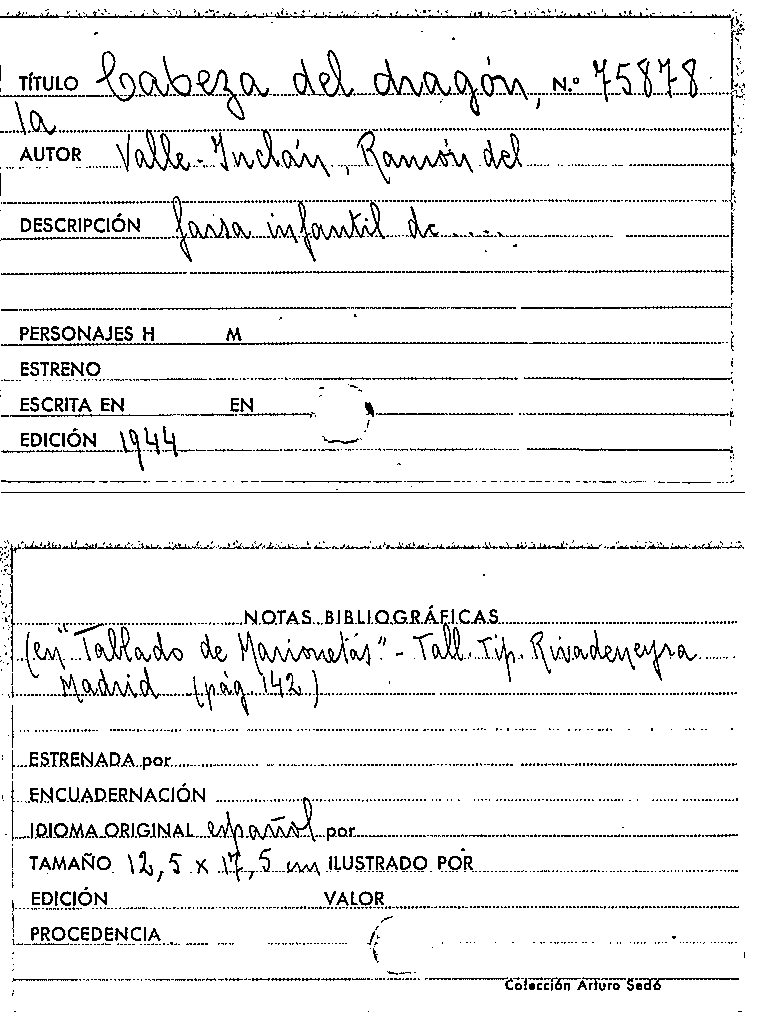 TÍTULO Cabeza del dragón, N.º 75878
la
AUTOR Valle-Inclán, Ramón del
DESCRIPCIÓN farsa infantil de ....
PERSONAJES H M
ESTRENO
ESCRITA EN EN
EDICIÓN 1944
NOTAS BIBLIOGRÁFICAS
(en "Tablado de Marionetas" - Tall. Tip. Rivadeneyra
Madrid (pág. 142)
ESTRENADA por
ENCUADERNACIÓN
IDIOMA ORIGINAL español por
TAMAÑO 12,5 x 17,5 cm ILUSTRADO POR
EDICIÓN VALOR
PROCEDENCIA
Colección Arturo Sedó